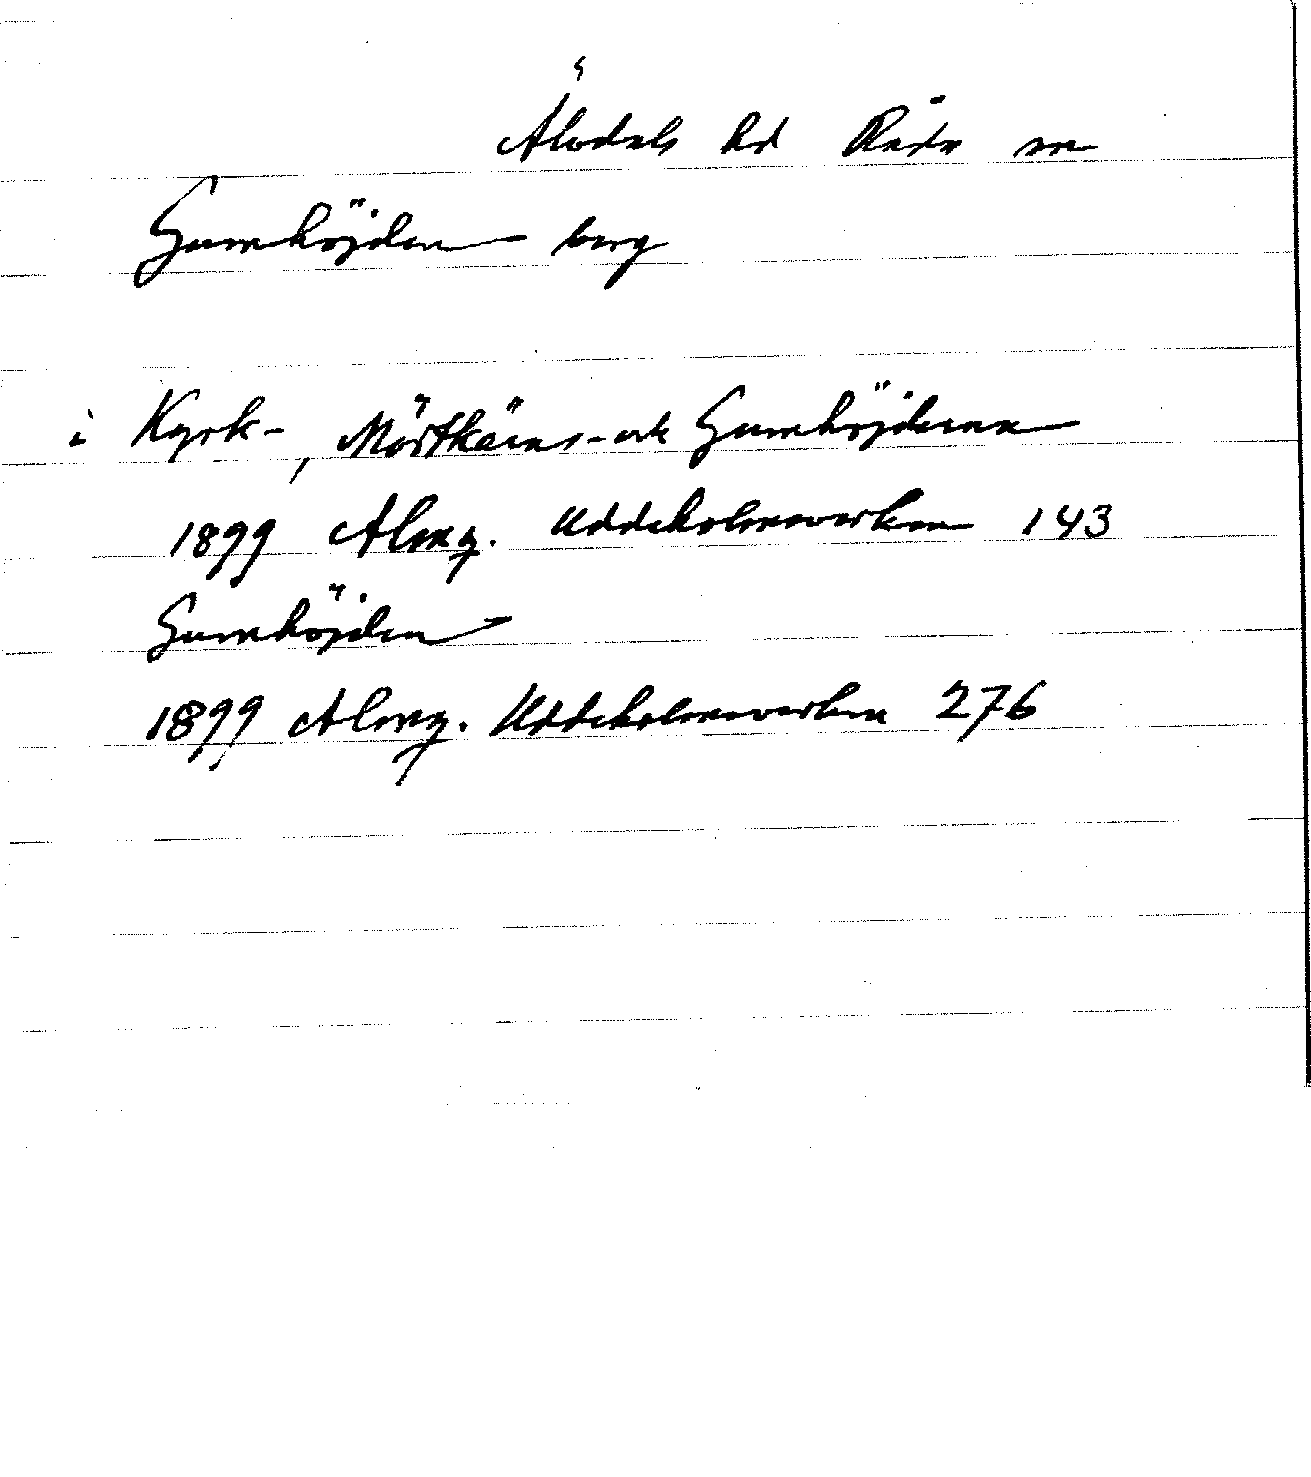 Älvdals hd Råda sn
Gumhöjden berg
i Kyrk-, Mörtkärns- och Gumhöjderna
1899 Almq. Uddeholmsverken 143
Gumhöjden
1899 Almq. Uddeholmsverken 276